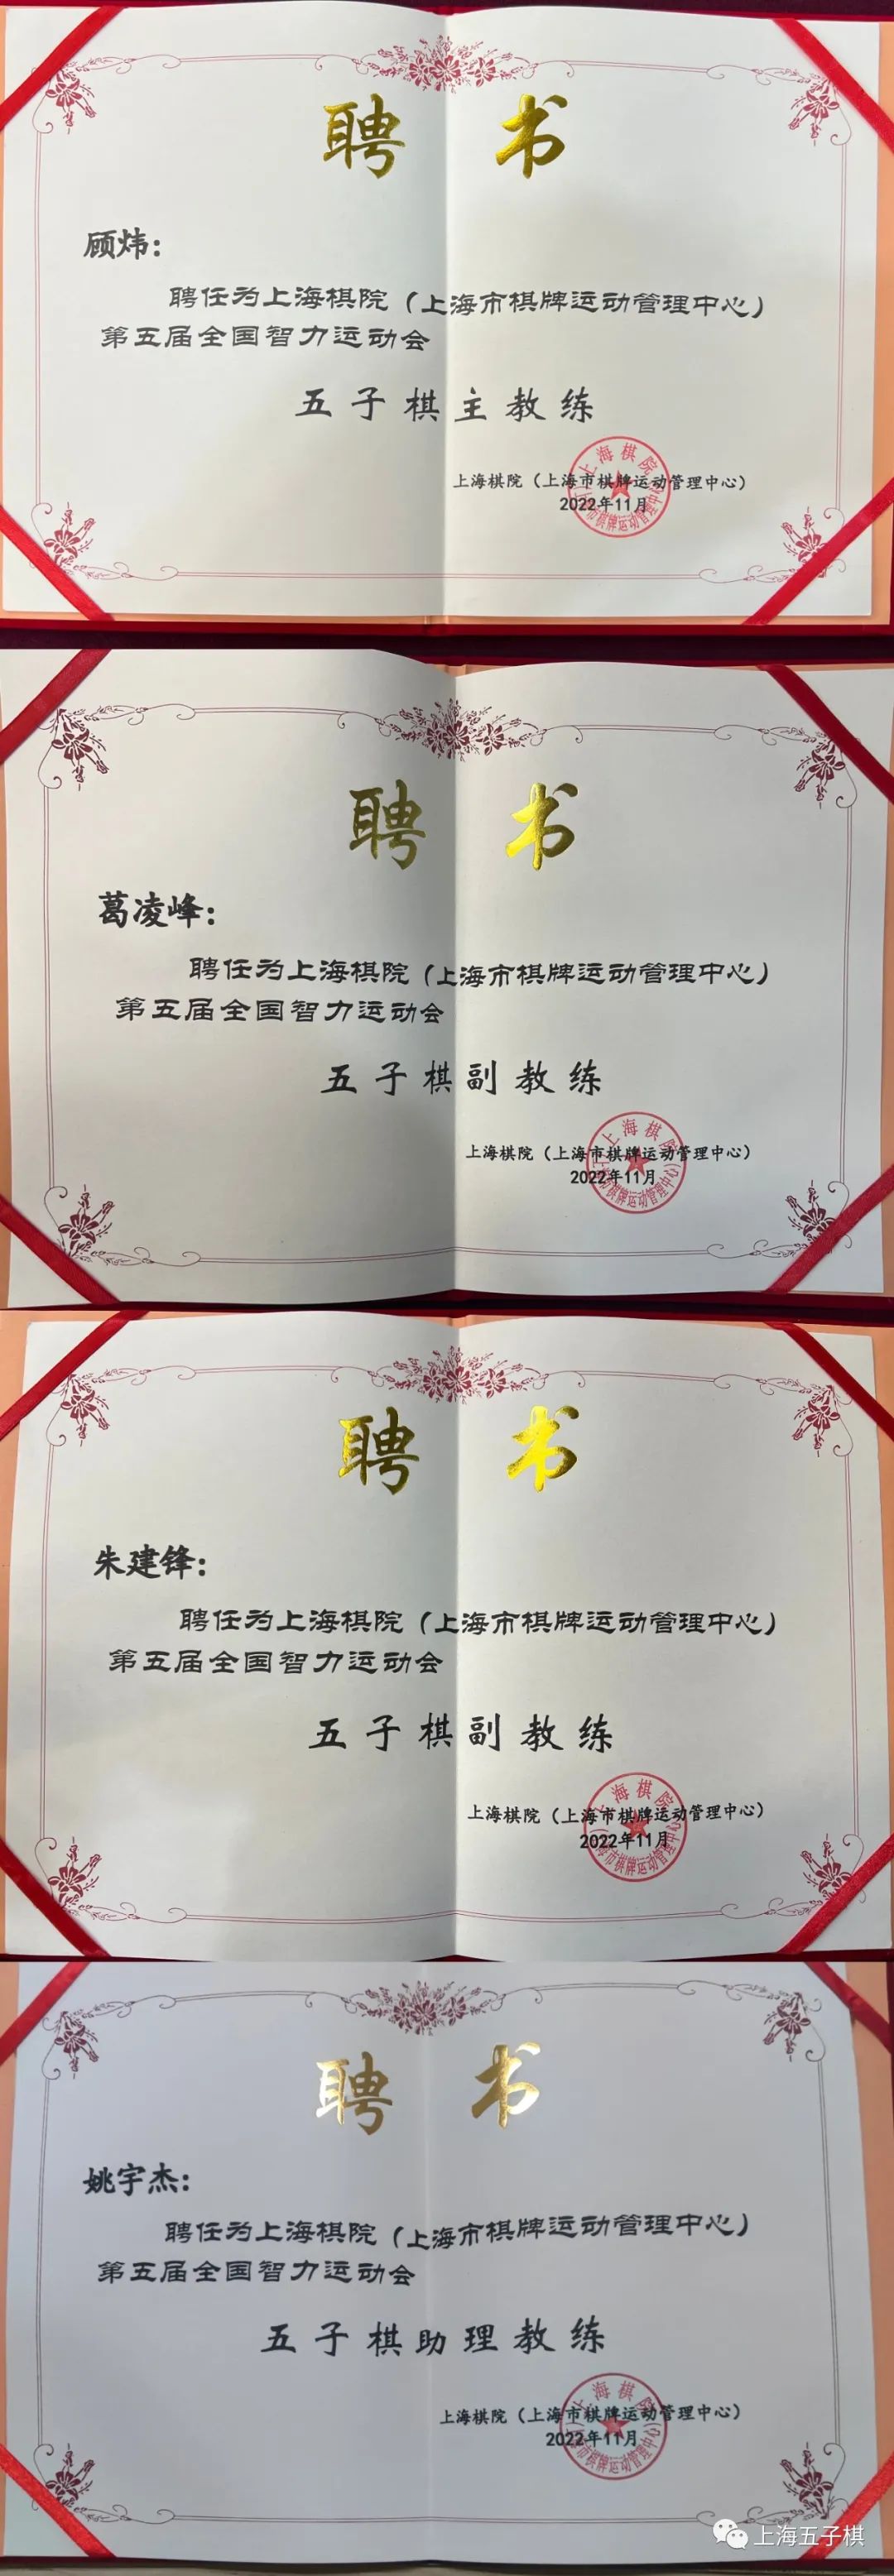 聘 书
顾炜：
聘任为上海棋院（上海市棋牌运动管理中心）
第五届全国智力运动会
五子棋主教练
上海棋院（上海市棋牌运动管理中心）
2022年11月
上海棋院（上海市棋牌运动管理中心）
聘 书
葛凌峰：
聘任为上海棋院（上海市棋牌运动管理中心）
第五届全国智力运动会
五子棋副教练
上海棋院（上海市棋牌运动管理中心）
2022年11月
上海棋院（上海市棋牌运动管理中心）
聘 书
朱建锋：
聘任为上海棋院（上海市棋牌运动管理中心）
第五届全国智力运动会
五子棋副教练
上海棋院（上海市棋牌运动管理中心）
2022年11月
上海棋院（上海市棋牌运动管理中心）
聘 书
姚宇杰：
聘任为上海棋院（上海市棋牌运动管理中心）
第五届全国智力运动会
五子棋助理教练
上海棋院（上海市棋牌运动管理中心）
2022年11月
上海棋院（上海市棋牌运动管理中心）
上海五子棋